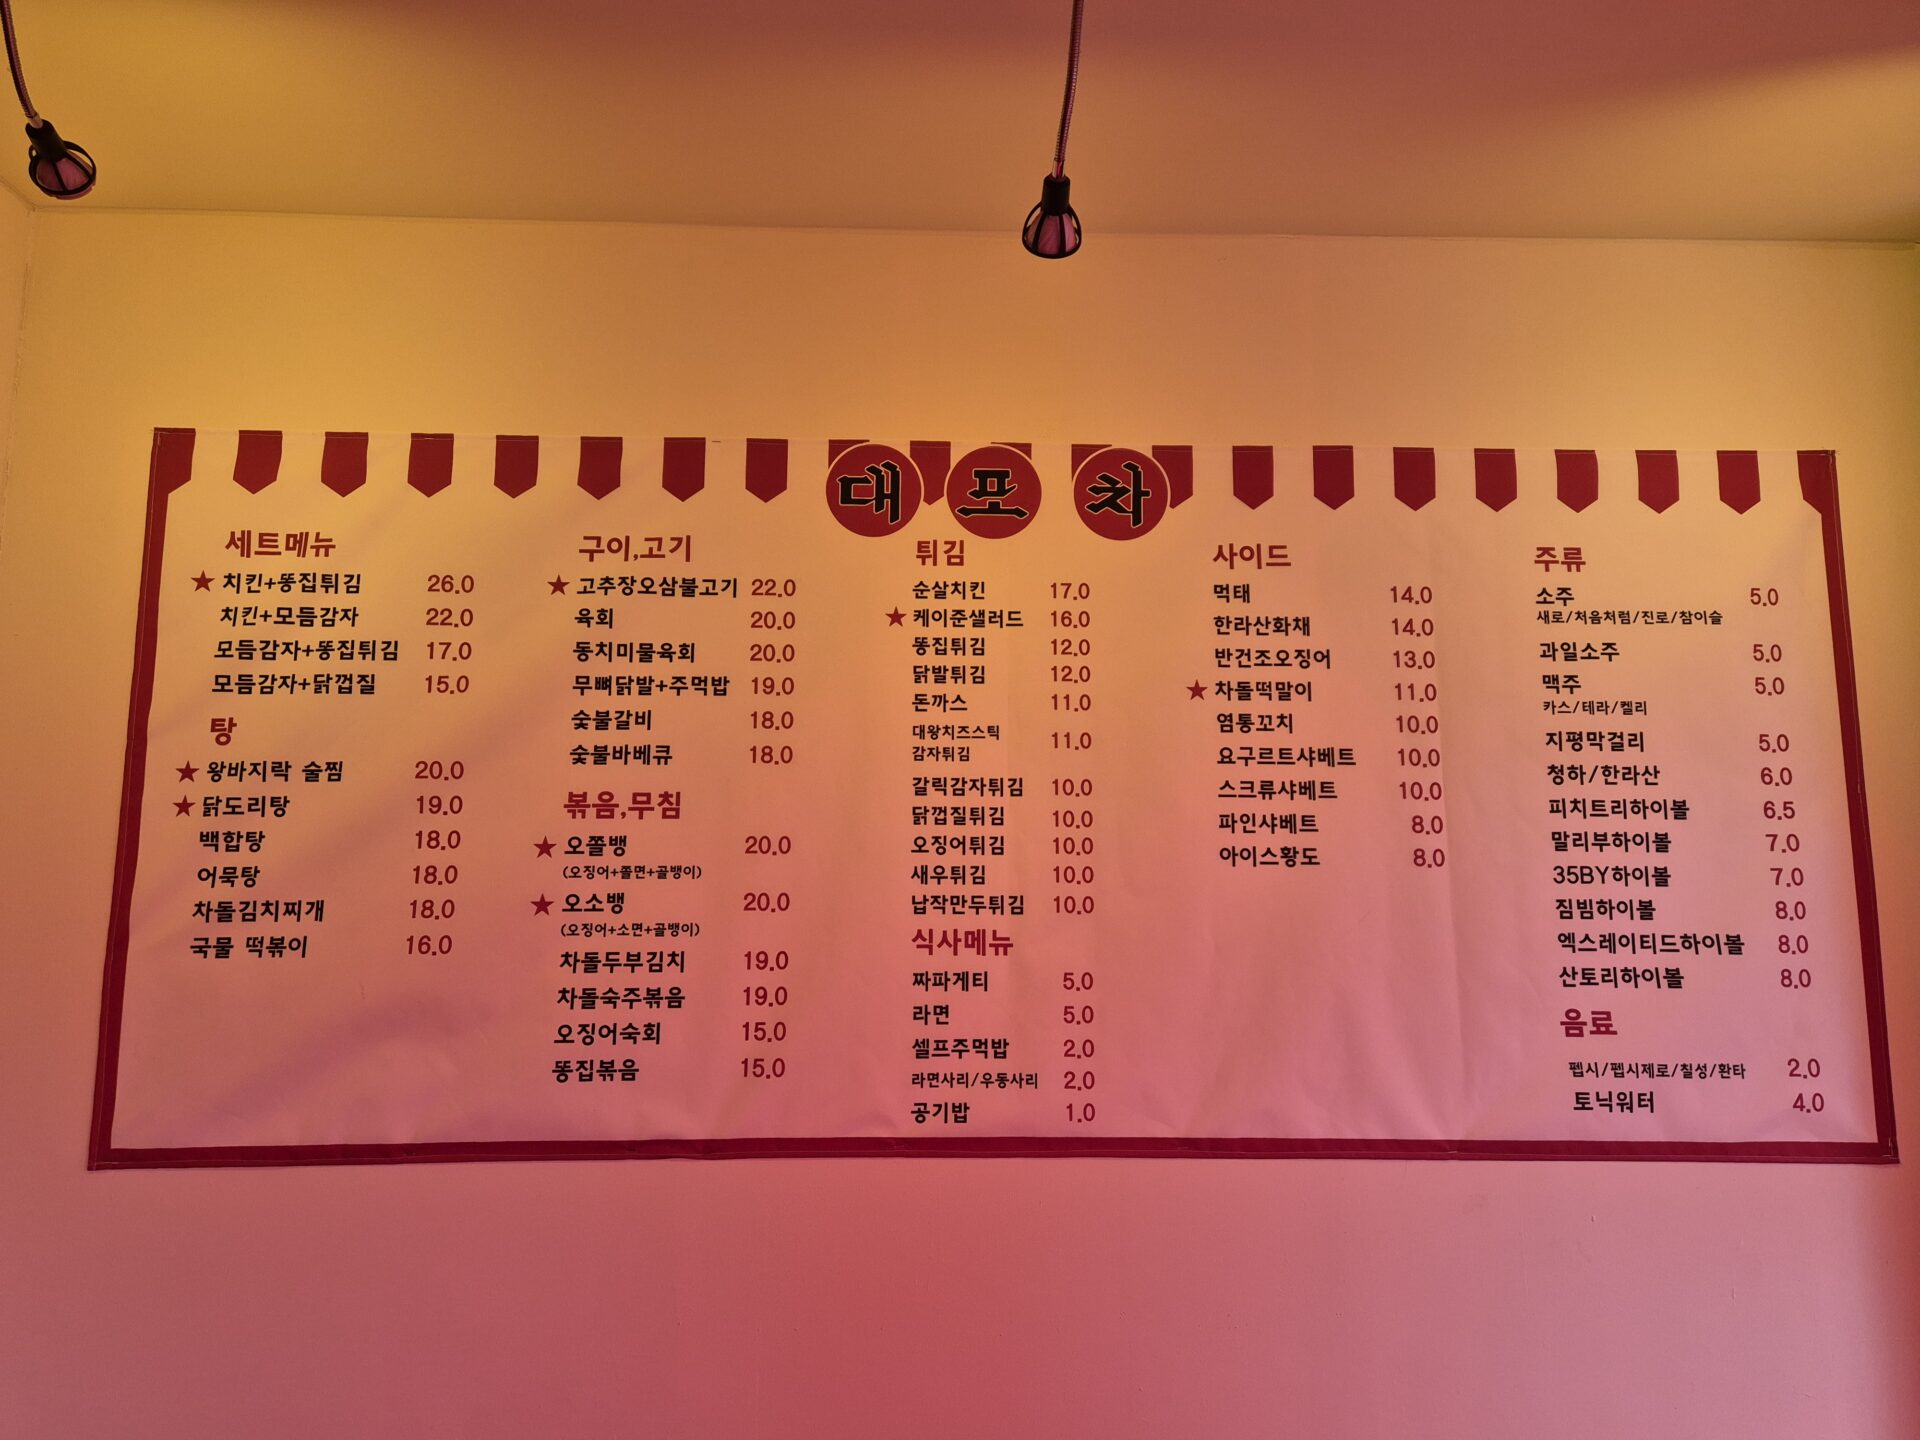 대포차
세트메뉴
★ 치킨+똥집튀김 26.0
치킨+모듬감자 22.0
모듬감자+똥집튀김 17.0
모듬감자+닭껍질 15.0
탕
★ 왕바지락 술찜 20.0
★ 닭도리탕 19.0
백합탕 18.0
어묵탕 18.0
차돌김치찌개 18.0
국물 떡볶이 16.0
구이,고기
★ 고추장오삼불고기 22.0
육회 20.0
동치미물육회 20.0
무뼈닭발+주먹밥 19.0
숯불갈비 18.0
숯불바베큐 18.0
볶음,무침
★ 오쫄뱅 20.0
(오징어+쫄면+골뱅이)
★ 오소뱅 20.0
(오징어+소면+골뱅이)
차돌두부김치 19.0
차돌숙주볶음 19.0
오징어숙회 15.0
똥집볶음 15.0
튀김
순살치킨 17.0
★ 케이준샐러드 16.0
똥집튀김 12.0
닭발튀김 12.0
돈까스 11.0
대왕치즈스틱
감자튀김 11.0
갈릭감자튀김 10.0
닭껍질튀김 10.0
오징어튀김 10.0
새우튀김 10.0
납작만두튀김 10.0
식사메뉴
짜파게티 5.0
라면 5.0
셀프주먹밥 2.0
라면사리/우동사리 2.0
공기밥 1.0
사이드
먹태 14.0
한라산화채 14.0
반건조오징어 13.0
★ 차돌떡말이 11.0
염통꼬치 10.0
요구르트샤베트 10.0
스크류샤베트 10.0
파인샤베트 8.0
아이스황도 8.0
주류
소주 5.0
새로/처음처럼/진로/참이슬
과일소주 5.0
맥주 5.0
카스/테라/켈리
지평막걸리 5.0
청하/한라산 6.0
피치트리하이볼 6.5
말리부하이볼 7.0
35BY하이볼 7.0
짐빔하이볼 8.0
엑스레이티드하이볼 8.0
산토리하이볼 8.0
음료
펩시/펩시제로/칠성/환타 2.0
토닉워터 4.0